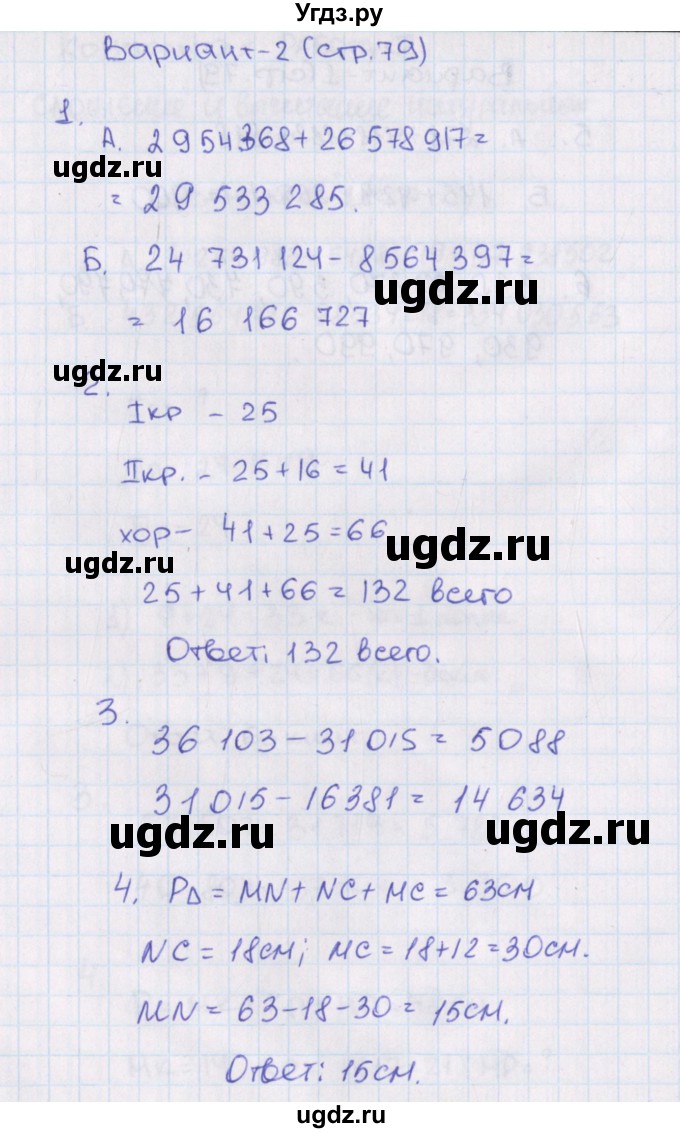 Угдз.ру
Вариант-2 (стр.79)
1.
А. 2954368+26 578 917=
ugdz.ru
= 29 533 285.
Б. 24 731 124-8564 397=
ugdz.ru
= 16 166 727
ugdz.ru
2.
Iкр - 25
IIкр. - 25+16=41
хор- 41+25=66
ugdz.ru
ugdz.ru
25+41+66=132 всего
Ответ: 132 всего.
3.
36 103-31015= 5088
31015-16381= 14 634
ugdz.ru
ugdz.ru
4. P∆ = MN+NC+MC = 63см
NC = 18см; MC = 18+12=30см.
MN = 63-18-30= 15см.
Ответ: 15см.
ugdz.ru